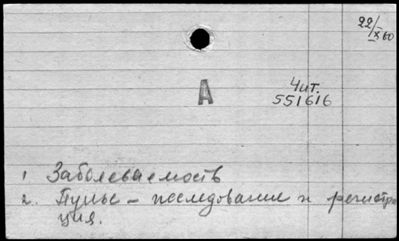 22/IX 60
А
Чит.
551616
1 Заболеваемость
2. Пульс – исследование и регистра
ция.